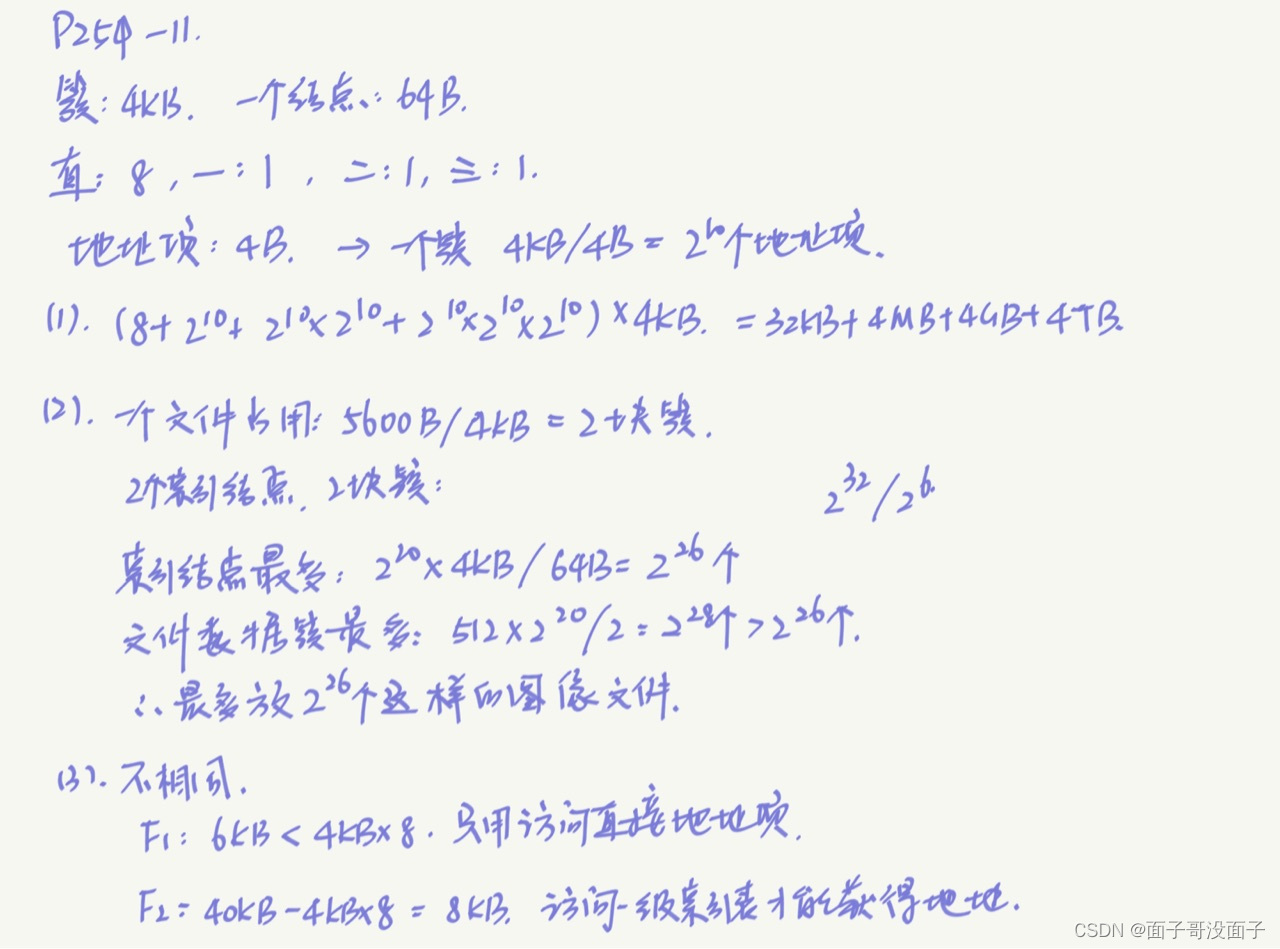 P254-11.
簇: 4KB. 一个结点: 64B.
直: 8, 一: 1, 二: 1, 三: 1.
地址项: 4B. → 一个簇 4KB/4B = 2^10个地址项.
(1). (8+2^10+2^10×2^10+2^10×2^10×2^10)×4KB. =32KB+4MB+4GB+4TB.
(2). 一个文件占用: 5600B/4KB = 2块簇.
2个索引结点, 2块簇:
2^32/2^6.
索引结点最多: 2^20×4KB/64B=2^26个
文件数据簇最多: 512×2^20/2=2^28个>2^26个.
∴最多放2^26个这样的图像文件.
(3). 不相同.
F1: 6KB<4KB×8. 只用访问直接地址项.
F2=40KB-4KB×8=8KB. 访问一级索引表才能获得地址.
CSDN @面子哥没面子